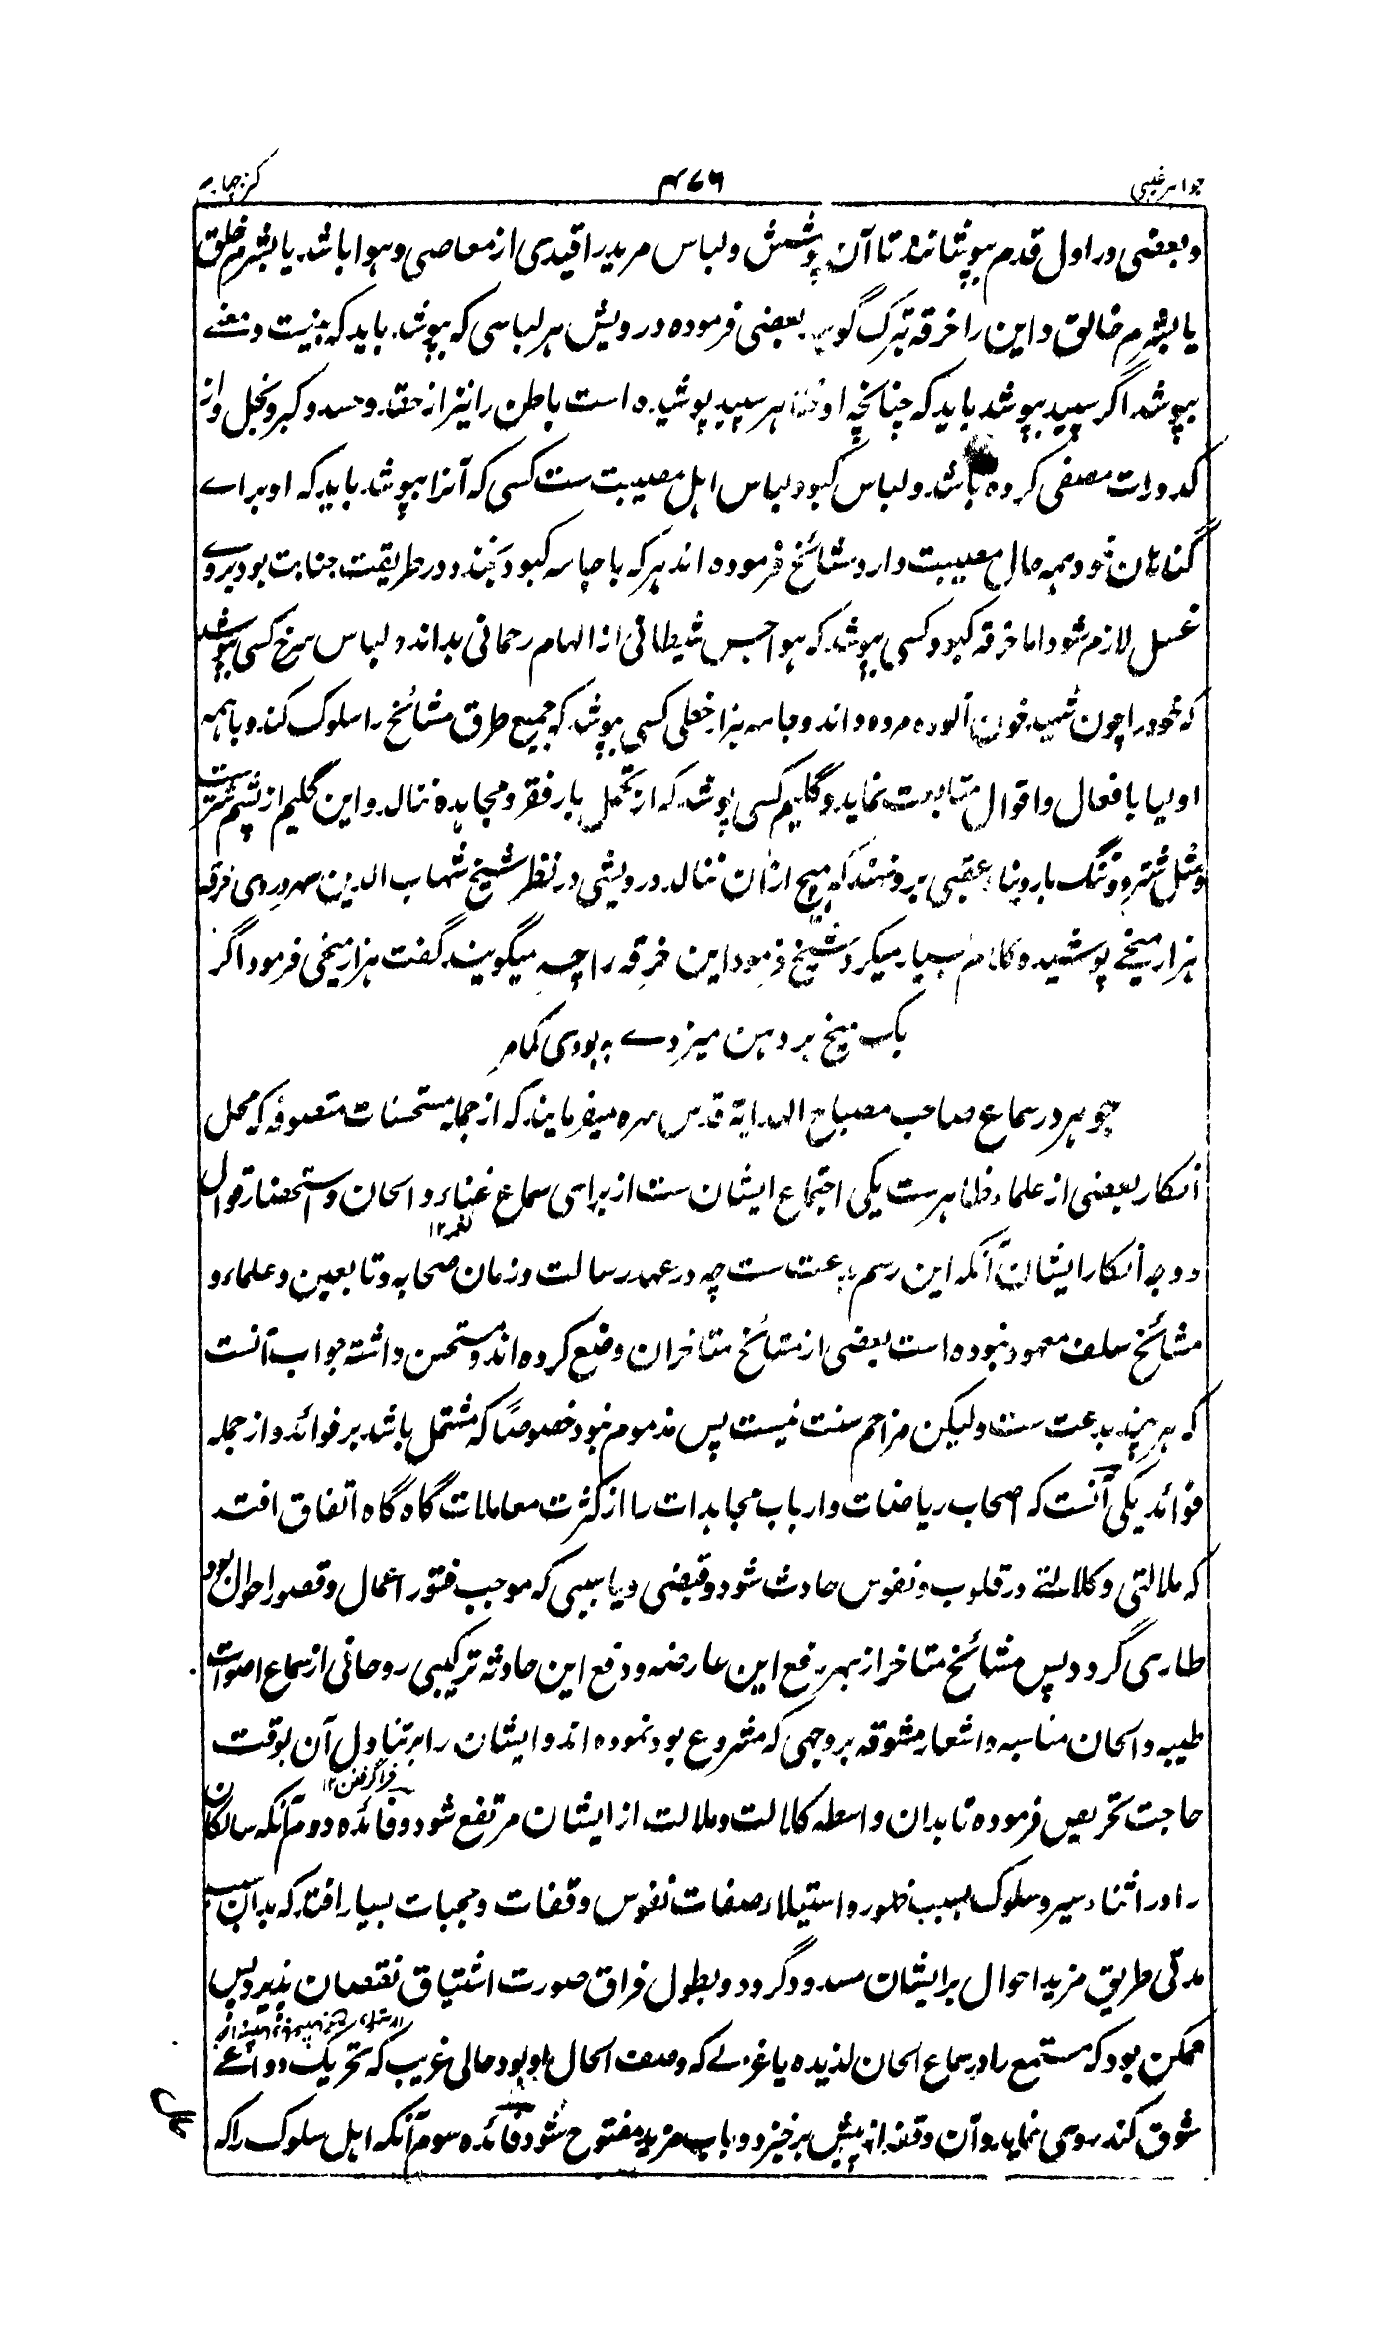 جواهر غیبی
۴۷۶
کنز چهارم
و بعضی در اول قدم بپوشانند تا آن پوشش و لباس مرید را قیدی از معاصی و هوا باشد یا بشرم خلق
یا بشرم خالق و این را خرقه تبرک گویند بعضی فرموده درویش هر لباسی که بپوشد باید که به نیت و معنے
بپوشد اگر سپید بپوشد باید که چنانچه او ظاهر سپید پوشیده است باطن را نیز از حقد و حسد و کبر و بخل و از
کدورات مصفی کرده باشد و لباس کبود لباس اهل مصیبت ست کسی که آنرا بپوشد باید که او برای
گناهان خود همه حال مصیبت دارد و مشائخ فرموده اند هر که با جامه کبود بخندد در طریقت جنابت بود بروے
غسل لازم شود اما خرقه کبود کسی پوشد که هواجس شیطانی از الهام رحمانی بداند و لباس سرخ کسی پوشد
که خود را چون شهید خون آلوده مرده داند و جامه هزار بخعلی کسی پوشد که جمیع طرق مشائخ را سلوک کند و با همه
اولیا بافعال و اقوال متابعت نماید و گلیم کسی پوشد که از تحمل بار فقر و مجاهده ننالد و این گلیم از پشم شترست
و مثل شتر و بار دنیا و عقبی برو نهند که هیچ ازان ننالد درویشی در نظر شیخ شهاب الدین سهروردی خرقه
هزار میخے پوشیده کلام بسیار میکرد شیخ فرمود این خرقه را چه میگویند گفت هزار میخی فرمود اگر
یک میخ بر دهن میزدے به بودی کمام
جوهر در سماع صاحب مصباح الهدایة قدس سره میفرمایند که از جمله مستحسنات متصوفه که محل
انکار بعضی از علماء ظاهرست یکی اجتماع ایشان ست از برای سماع غناء و الحان و استحضار قوال
نغمه ۱۲
و وجه انکار ایشان آنکه این رسم بدعت ست چه در عهد رسالت و زمان صحابه و تابعین و علماء و
مشائخ سلف معهود نبوده است بعضی از مشائخ متاخران وضع کرده اند و مستحسن داشته جواب آنست
که هر چند بدعت ست ولیکن مزاحم سنت نیست پس مذموم نبود خصوصاً که مشتمل باشد بر فوائد و از جمله
فوائد یکی آنست که اصحاب ریاضات و ارباب مجاهدات را از کثرت معاملات گاه گاه اتفاق افتد
که ملالتی و کلالتے در قلوب و نفوس حادث شود و قبضی و یاسی که موجب فتور اعمال و قصور احوال بود
طاری گردد پس مشائخ متاخر از بهر رفع این عارضه و دفع این حادثه ترکیبی روحانی از سماع اصوات
طیبه و الحان مناسبه و اشعار مشوقه بر وجهی که مشروع بود نموده اند و ایشان را بر تناول آن بوقت
فرا گرفتن ۱۲
حاجت تحریص فرموده تا بدان واسطه کلالت و ملالت از ایشان مرتفع شود و فائده دوم آنکه سالکان
را در اثناء سیر و سلوک بسبب ظهور و استیلاء صفات نفوس وقفات و حجبات بسیار افتد که بدان سبب
مدتی طریق مزید احوال بر ایشان مسدود گردد و بطول فراق صورت اشتیاق نقصان پذیرد پس
ممکن بود که مستمع را در سماع الحان لذیذه یا غزلے که وصف الحال او بود حالی غریب که تحریک دواعے
شوق کند روی نماید و آن وقفه از پیش برخیزد و باب مزید مفتوح شود فائده سوم آنکه اهل سلوک را که
حال